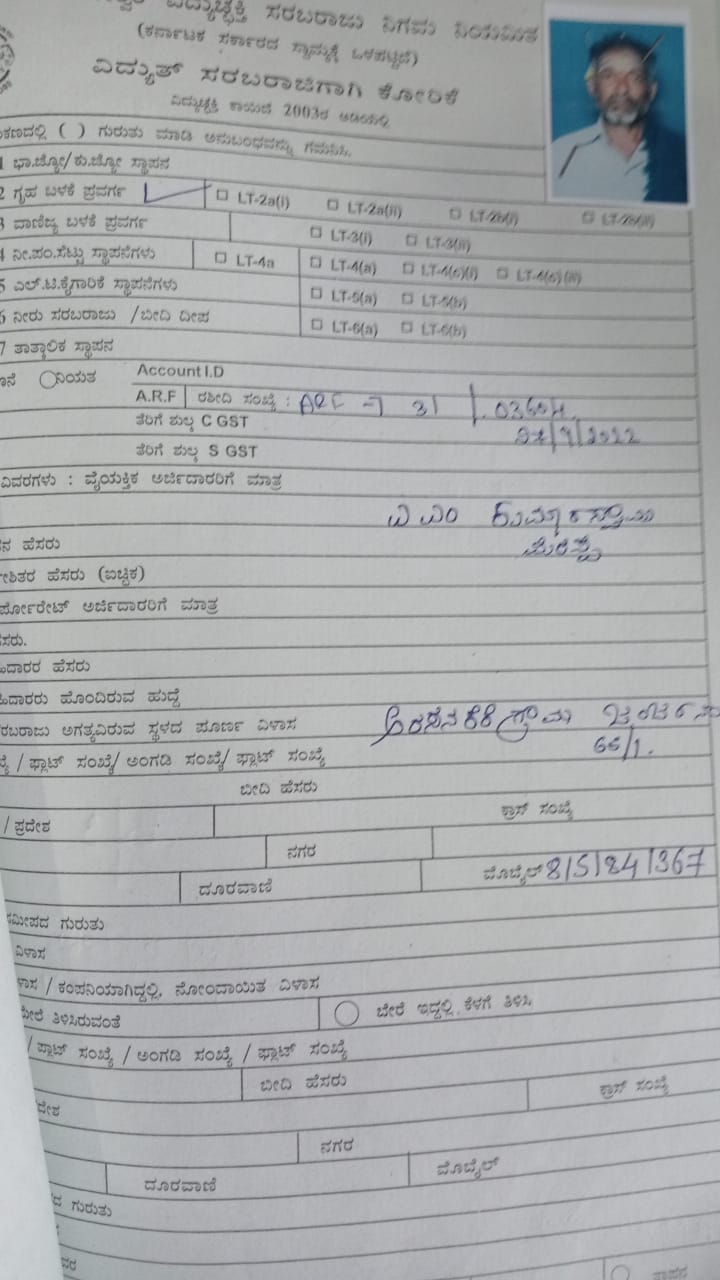 ವಿದ್ಯುಚ್ಛಕ್ತಿ ಸರಬರಾಜು ನಿಗಮ ನಿಯಮಿತ
(ಕರ್ನಾಟಕ ಸರ್ಕಾರದ ಸ್ವಾಮ್ಯಕ್ಕೆ ಒಳಪಟ್ಟಿದೆ)
ವಿದ್ಯುತ್ ಸರಬರಾಜಿಗಾಗಿ ಕೋರಿಕೆ
ವಿದ್ಯುಚ್ಛಕ್ತಿ ಕಾಯಿದೆ 2003ರ ಅಡಿಯಲ್ಲಿ
ಕಣದಲ್ಲಿ ( ) ಗುರುತು ಮಾಡಿ ಅನುಬಂಧವನ್ನು ಗಮನಿಸಿ.
1 ಭಾ.ಜ್ಯೋ/ಕು.ಜ್ಯೋ ಸ್ಥಾಪನ
2 ಗೃಹ ಬಳಕೆ ಪ್ರವರ್ಗ LT-2a(i) LT-2a(ii) LT-2b(i) LT-2b(ii)
3 ವಾಣಿಜ್ಯ ಬಳಕೆ ಪ್ರವರ್ಗ LT-3(i) LT-3(ii)
4 ನೀ.ಪಂ.ಸೆಟ್ಟು ಸ್ಥಾಪನೆಗಳು LT-4a LT-4(a) LT-4(c)(i) LT-4(c)(ii)
5 ಎಲ್.ಟಿ.ಕೈಗಾರಿಕೆ ಸ್ಥಾಪನೆಗಳು LT-5(a) LT-5(b)
6 ನೀರು ಸರಬರಾಜು /ಬೀದಿ ದೀಪ LT-6(a) LT-6(b)
7 ತಾತ್ಕಾಲಿಕ ಸ್ಥಾಪನ
ನಿಯತ Account I.D
A.R.F ರಶೀದಿ ಸಂಖ್ಯೆ : ARF -7 31
ತೆರಿಗೆ ಶುಲ್ಕ C GST
ತೆರಿಗೆ ಶುಲ್ಕ S GST
ವಿವರಗಳು : ವೈಯಕ್ತಿಕ ಅರ್ಜಿದಾರರಿಗೆ ಮಾತ್ರ
ವಿ ಎಂ ಕುಮಾರಸ್ವಾಮಿ
ನ ಹೆಸರು
ಶಿತರ ಹೆಸರು (ಐಚ್ಛಿಕ)
ರ್ಪೋರೇಟ್ ಅರ್ಜಿದಾರರಿಗೆ ಮಾತ್ರ
ಸರು.
ದಾರರ ಹೆಸರು
ದಾರರು ಹೊಂದಿರುವ ಹುದ್ದೆ
ರಬರಾಜು ಅಗತ್ಯವಿರುವ ಸ್ಥಳದ ಪೂರ್ಣ ವಿಳಾಸ ಅರಸನಕೆರೆ ಗ್ರಾಮ
/ ಫ್ಲಾಟ್ ಸಂಖ್ಯೆ/ ಅಂಗಡಿ ಸಂಖ್ಯೆ/ ಫ್ಲಾಟ್ ಸಂಖ್ಯೆ 66/1.
ಬೀದಿ ಹೆಸರು
/ ಪ್ರದೇಶ ಕ್ರಾಸ್ ಸಂಖ್ಯೆ
ನಗರ
ದೂರವಾಣಿ ಮೊಬೈಲ್
ಸಮೀಪದ ಗುರುತು
ವಿಳಾಸ
ಳಾಸ / ಕಂಪನಿಯಾಗಿದ್ದಲ್ಲಿ, ನೋಂದಾಯಿತ ವಿಳಾಸ
ಮೇಲೆ ತಿಳಿಸಿರುವಂತೆ ಬೇರೆ ಇದ್ದಲ್ಲಿ ಕೆಳಗೆ ತಿಳಿಸಿ
/ ಫ್ಲಾಟ್ ಸಂಖ್ಯೆ / ಅಂಗಡಿ ಸಂಖ್ಯೆ / ಫ್ಲಾಟ್ ಸಂಖ್ಯೆ
ಬೀದಿ ಹೆಸರು
ದೇಶ ಕ್ರಾಸ್ ಸಂಖ್ಯೆ
ನಗರ
ದೂರವಾಣಿ ಮೊಬೈಲ್
ದ ಗುರುತು